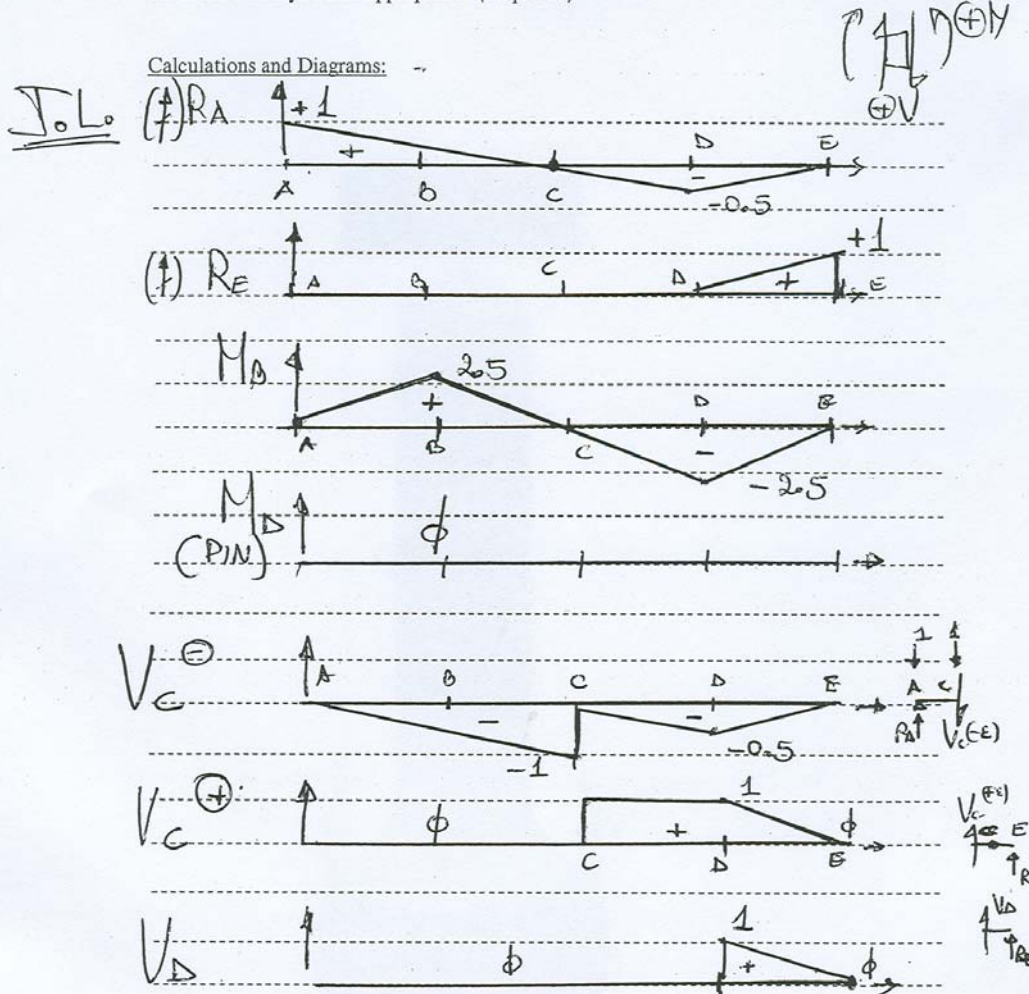 ⊕M
⊕V
Calculations and Diagrams:
I.L. (↑) RA +1
+
A B C D E
-
-0.5
(↑) RE +1
A B C D + E
MB 2.5
+
A B C D E
-
-2.5
MD
(PIN) ϕ
VC ⊖ A B C D E
-
-
-1
-0.5
1 1
A C
RA Vc(-ε)
VC ⊕ ϕ 1
+ ϕ
C D E
Vc(+ε)
E
R
VD ϕ 1
+ ϕ
VD
RE